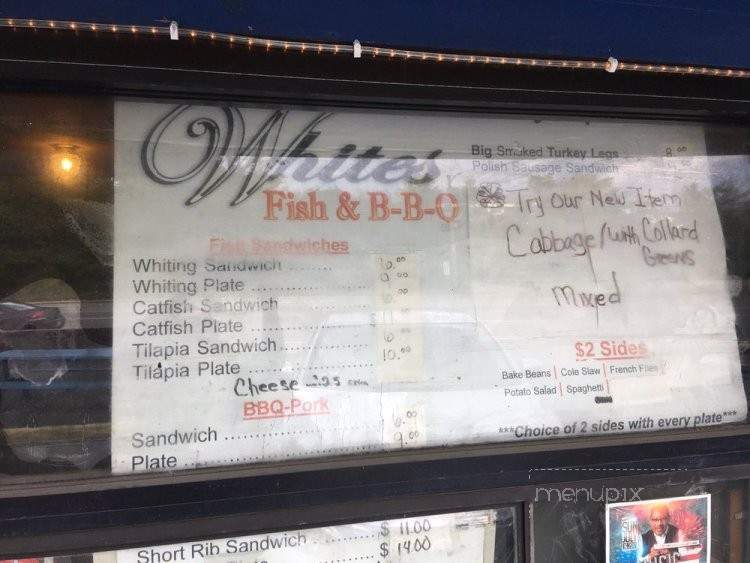 Whites
Fish & B-B-Q
Fish Sandwiches
Whiting Sandwich
Whiting Plate
Catfish Sandwich
Catfish Plate
Tilapia Sandwich
Tilapia Plate 10.00
Cheese
BBQ-Pork
Sandwich 6.00
Plate 9.00
Big Smoked Turkey Legs 8.00
Polish Sausage Sandwich
Try Our New Item
Cabbage/with Collard
Greens
Mixed
$2 Sides
Bake Beans | Cole Slaw | French Fries
Potato Salad | Spaghetti
***Choice of 2 sides with every plate***
menupix
Short Rib Sandwich $ 11.00
$ 14.00